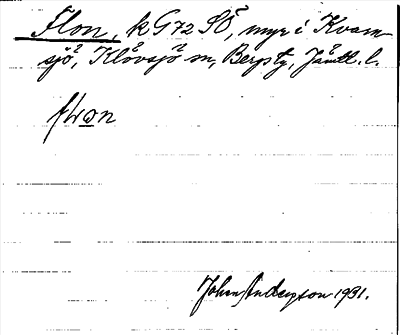 Flon, k G72 SÖ, myr i Kvarn-
sjö, Klövsjö sn, Bergs tg, Jämtl. l.
flωn
John Anderson 1931.